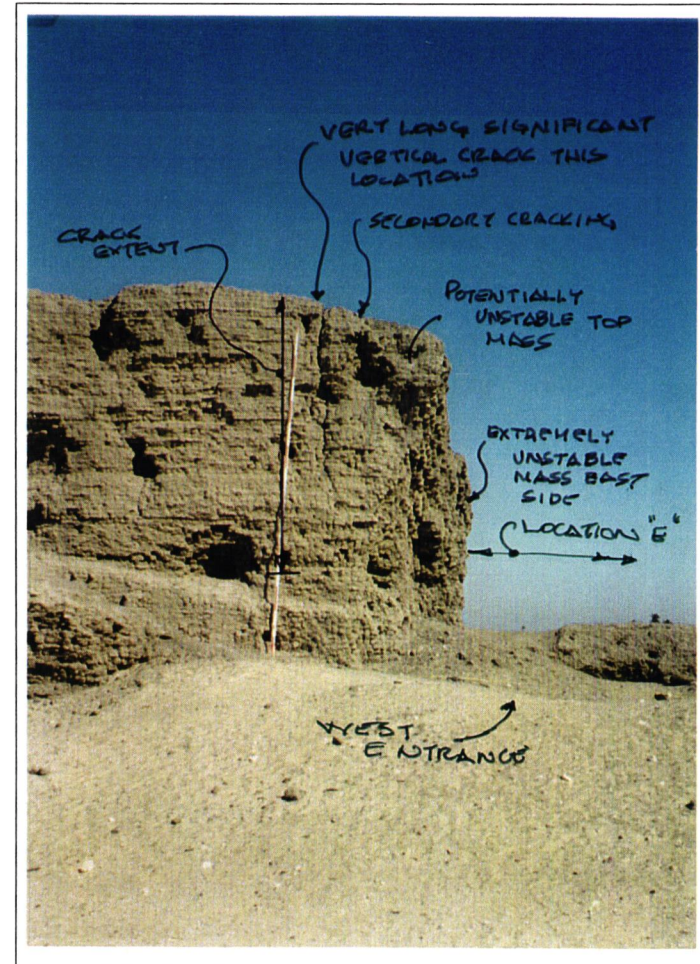 VERY LONG SIGNIFICANT
VERTICAL CRACK THIS
LOCATION
SECONDARY CRACKING
CRACK
EXTENT
POTENTIALLY
UNSTABLE TOP
MASS
EXTREMELY
UNSTABLE
MASS EAST
SIDE
LOCATION "E"
WEST
ENTRANCE